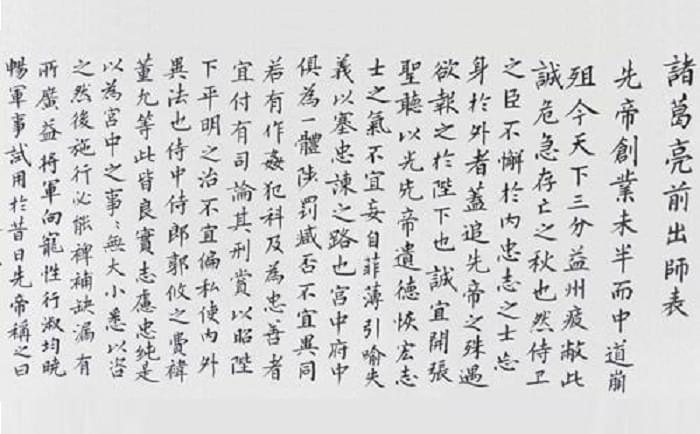 諸葛亮前出師表
先帝創業未半而中道崩
殂今天下三分益州疲敝此
誠危急存亡之秋也然侍卫
之臣不懈於内忠志之士忘
身於外者蓋追先帝之殊遇
欲報之於陛下也誠宜開張
聖聽以光先帝遺德恢宏志
士之氣不宜妄自菲薄引喻失
義以塞忠諫之路也宮中府中
俱為一體陟罰臧否不宜異同
若有作姦犯科及為忠善者
宜付有司論其刑賞以昭陛
下平明之治不宜偏私使内外
異法也侍中侍郎郭攸之費禕
董允等此皆良實志慮忠純是
以為宮中之事〻無大小悉以咨
之然後施行必能裨補缺漏有
所廣益将軍向寵性行淑均曉
暢軍事試用於昔日先帝稱之曰